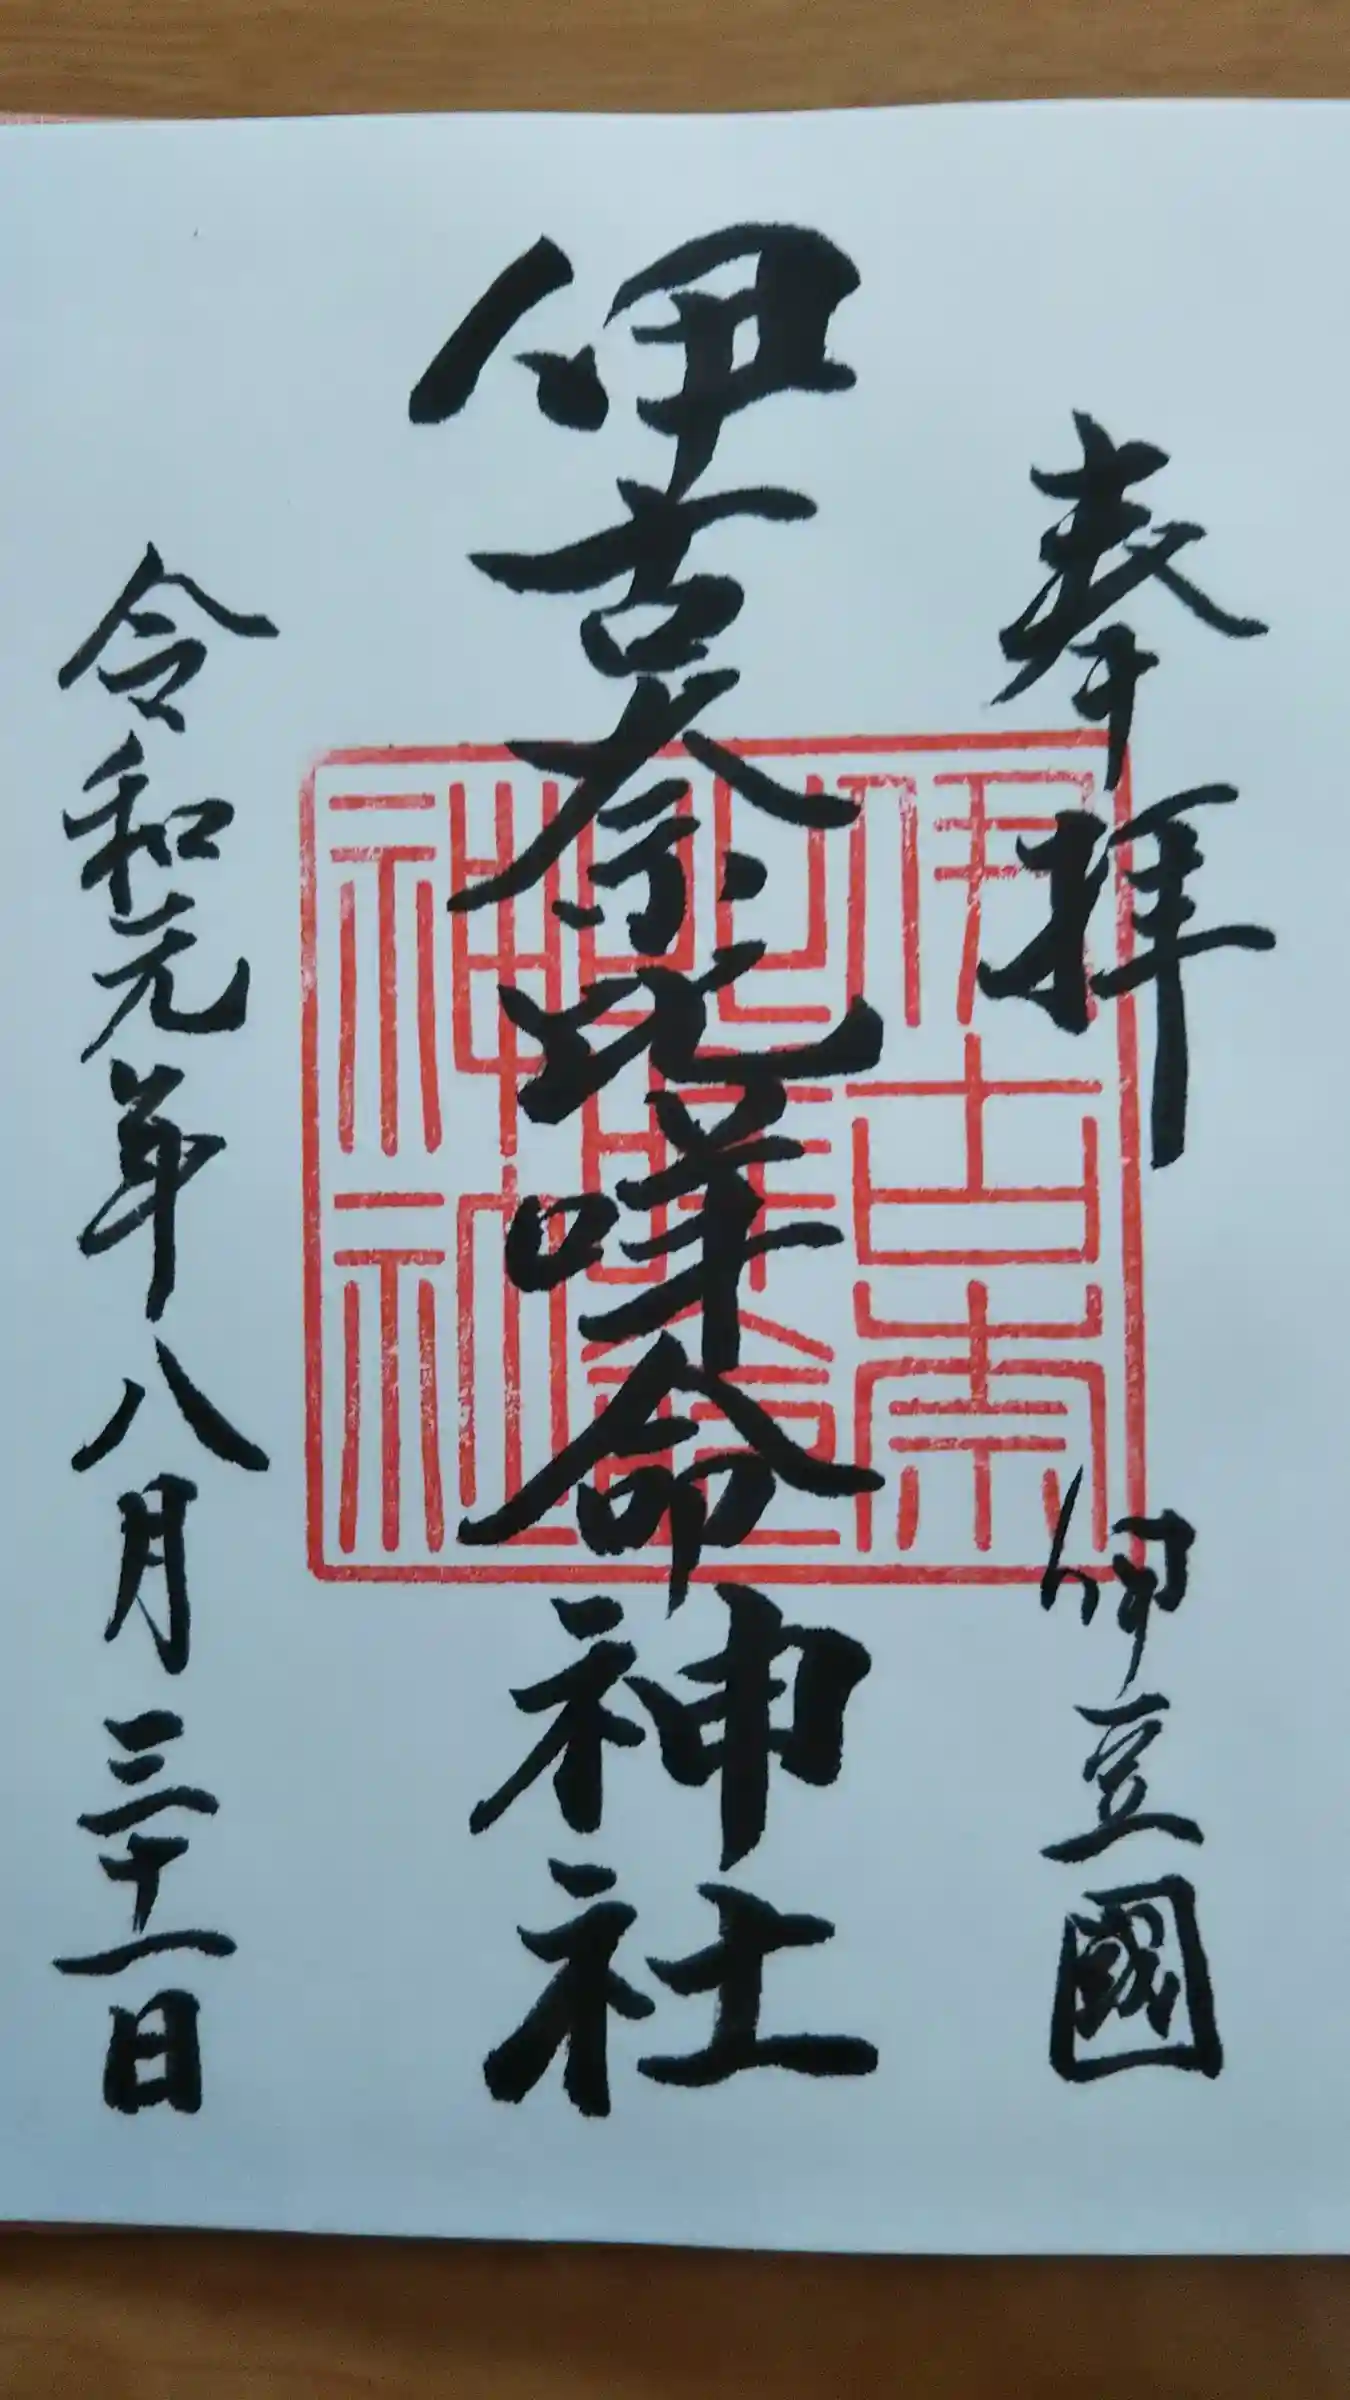 奉拝
伊豆國
伊古奈比咩命神社
伊古奈
比咩命
神社
令和元年八月三十一日